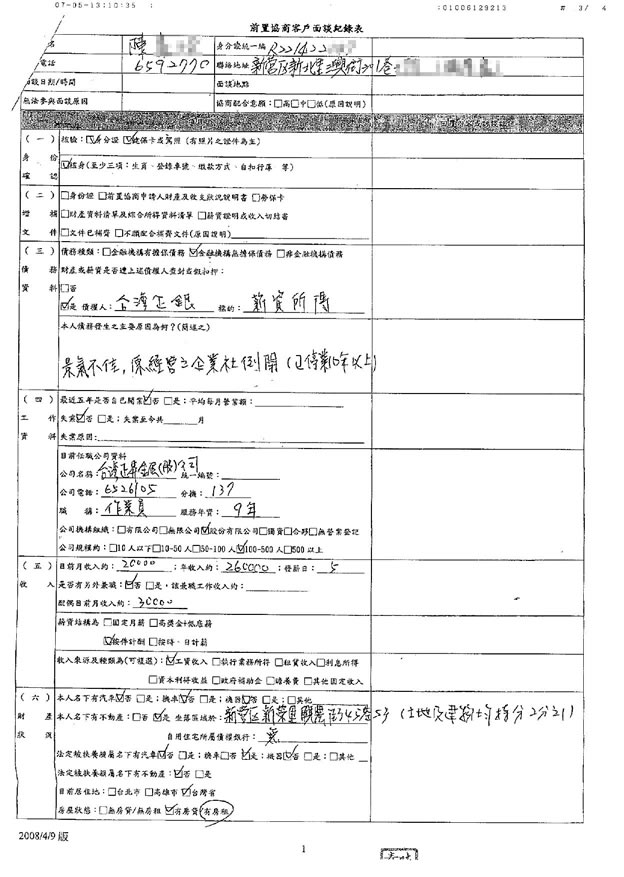 07-05-13;10:35 ;01006129213 # 3/ 4
前置協商客戶面談紀錄表
名 陳 身分證統一編 R221422
電話 6592770 聯絡地址 新營區新北里
面談日期/時間 面談地點
無法參與面談原因 協商配合意願：□高□中□低(原因說明)
(一) 身份確認
核驗：☑身分證 ☑健保卡或駕照 (有照片之證件為主)
☑核身(至少三項：生肖、登錄車號、繳款方式、自扣行庫 等)
(二) 增補文件
□身份證 □前置協商申請人財產及收支狀況說明書 □勞保卡
□財產資料清單及綜合所得資料清單 □薪資證明或收入切結書
□文件已補齊 □不願配合補齊文件(原因說明)
(三) 債務資料
債務種類：□金融機構有擔保債務 ☑金融機構無擔保債務 □非金融機構債務
財產或薪資是否遭上述債權人查封或假扣押：
□否
☑是 債權人： 台灣企銀 標的： 薪資所得
本人債務發生之主要原因為何？(簡述之)
景氣不佳，原經營之企業社倒閉 (已停業10年以上)
(四) 工作資料
最近五年是否自己開業☑否 □是；平均每月營業額：
失業☑否 □是；失業至今共 月
失業原因：
目前任職公司資料
公司名稱： 統一編號：
公司電話：6526105 分機：137
職 稱：作業員 服務年資：9年
公司機構組織：□有限公司□無限公司☑股份有限公司□獨資□合夥□無營業登記
公司規模約：□10 人以下□10-50 人□50-100 人☑100-500 人□500 以上
(五) 收入
目前月收入約：20000 ；年收入約：260000 ；發薪日：5
是否有另外兼職：☑否 □是，該兼職工作收入約：
配偶目前月收入約：30000
薪資結構為 □固定月薪 □高獎金+低底薪
☑按件計酬 □按時、日計薪
收入來源及種類為(可複選)：☑工資收入 □執行業務所得 □租賃收入□利息所得
□資本利得收益 □政府補助金 □贍養費 □其他固定收入
(六) 財產狀況
本人名下有汽車☑否 □是；機車☑否 □是；機器☑否 □是；□其他
本人名下有不動產：□否 ☑是 坐落區域於：新營區新榮里 (土地及建物均持分2分之1)
自用住宅所屬債權銀行： 無
法定被扶養親屬名下有汽車☑否 □是；機車□否 ☑是；機器☑否 □是；□其他
法定被扶養親屬名下有不動產：☑否 □是
目前居住地：□台北市 □高雄市 ☑台灣省
房屋狀態：□無房貸/無房租 ☑有房貸 有房租
2008/4/9 版
1